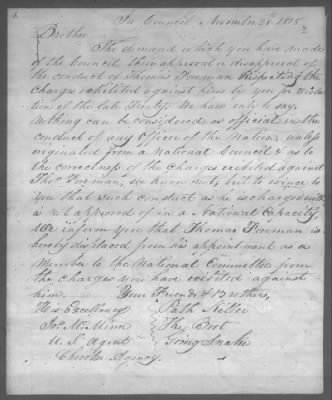 In Council November 28th 1805
Brother
The demand which you have made
of the Council their approval or disapproval of
the conduct of Thomas Foreman Respecting the
Charges exhibited against him by you in viola-
tion of the late Treaty. We have only to say,
Nothing can be considered as official in the
conduct of any Officer of the Nation, unless
originated from a National Council & as to
the correctness of the charges exhibited against
Thos. Foreman, we know not, but to evince to
you that such conduct as he is charged with
is not approved of in a National Capacity
We inform you that Thomas Foreman is
hereby displaced from his appointment as a
Member to the National Committee from
the charges you have exhibited against
him. Your Friends & Brothers,
His Excellency Path Killer
Jos. McMinn The Boot
U. S. Agent Going Snake
Cherokee Agency.